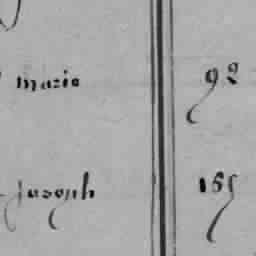 marie 92
joseph 155